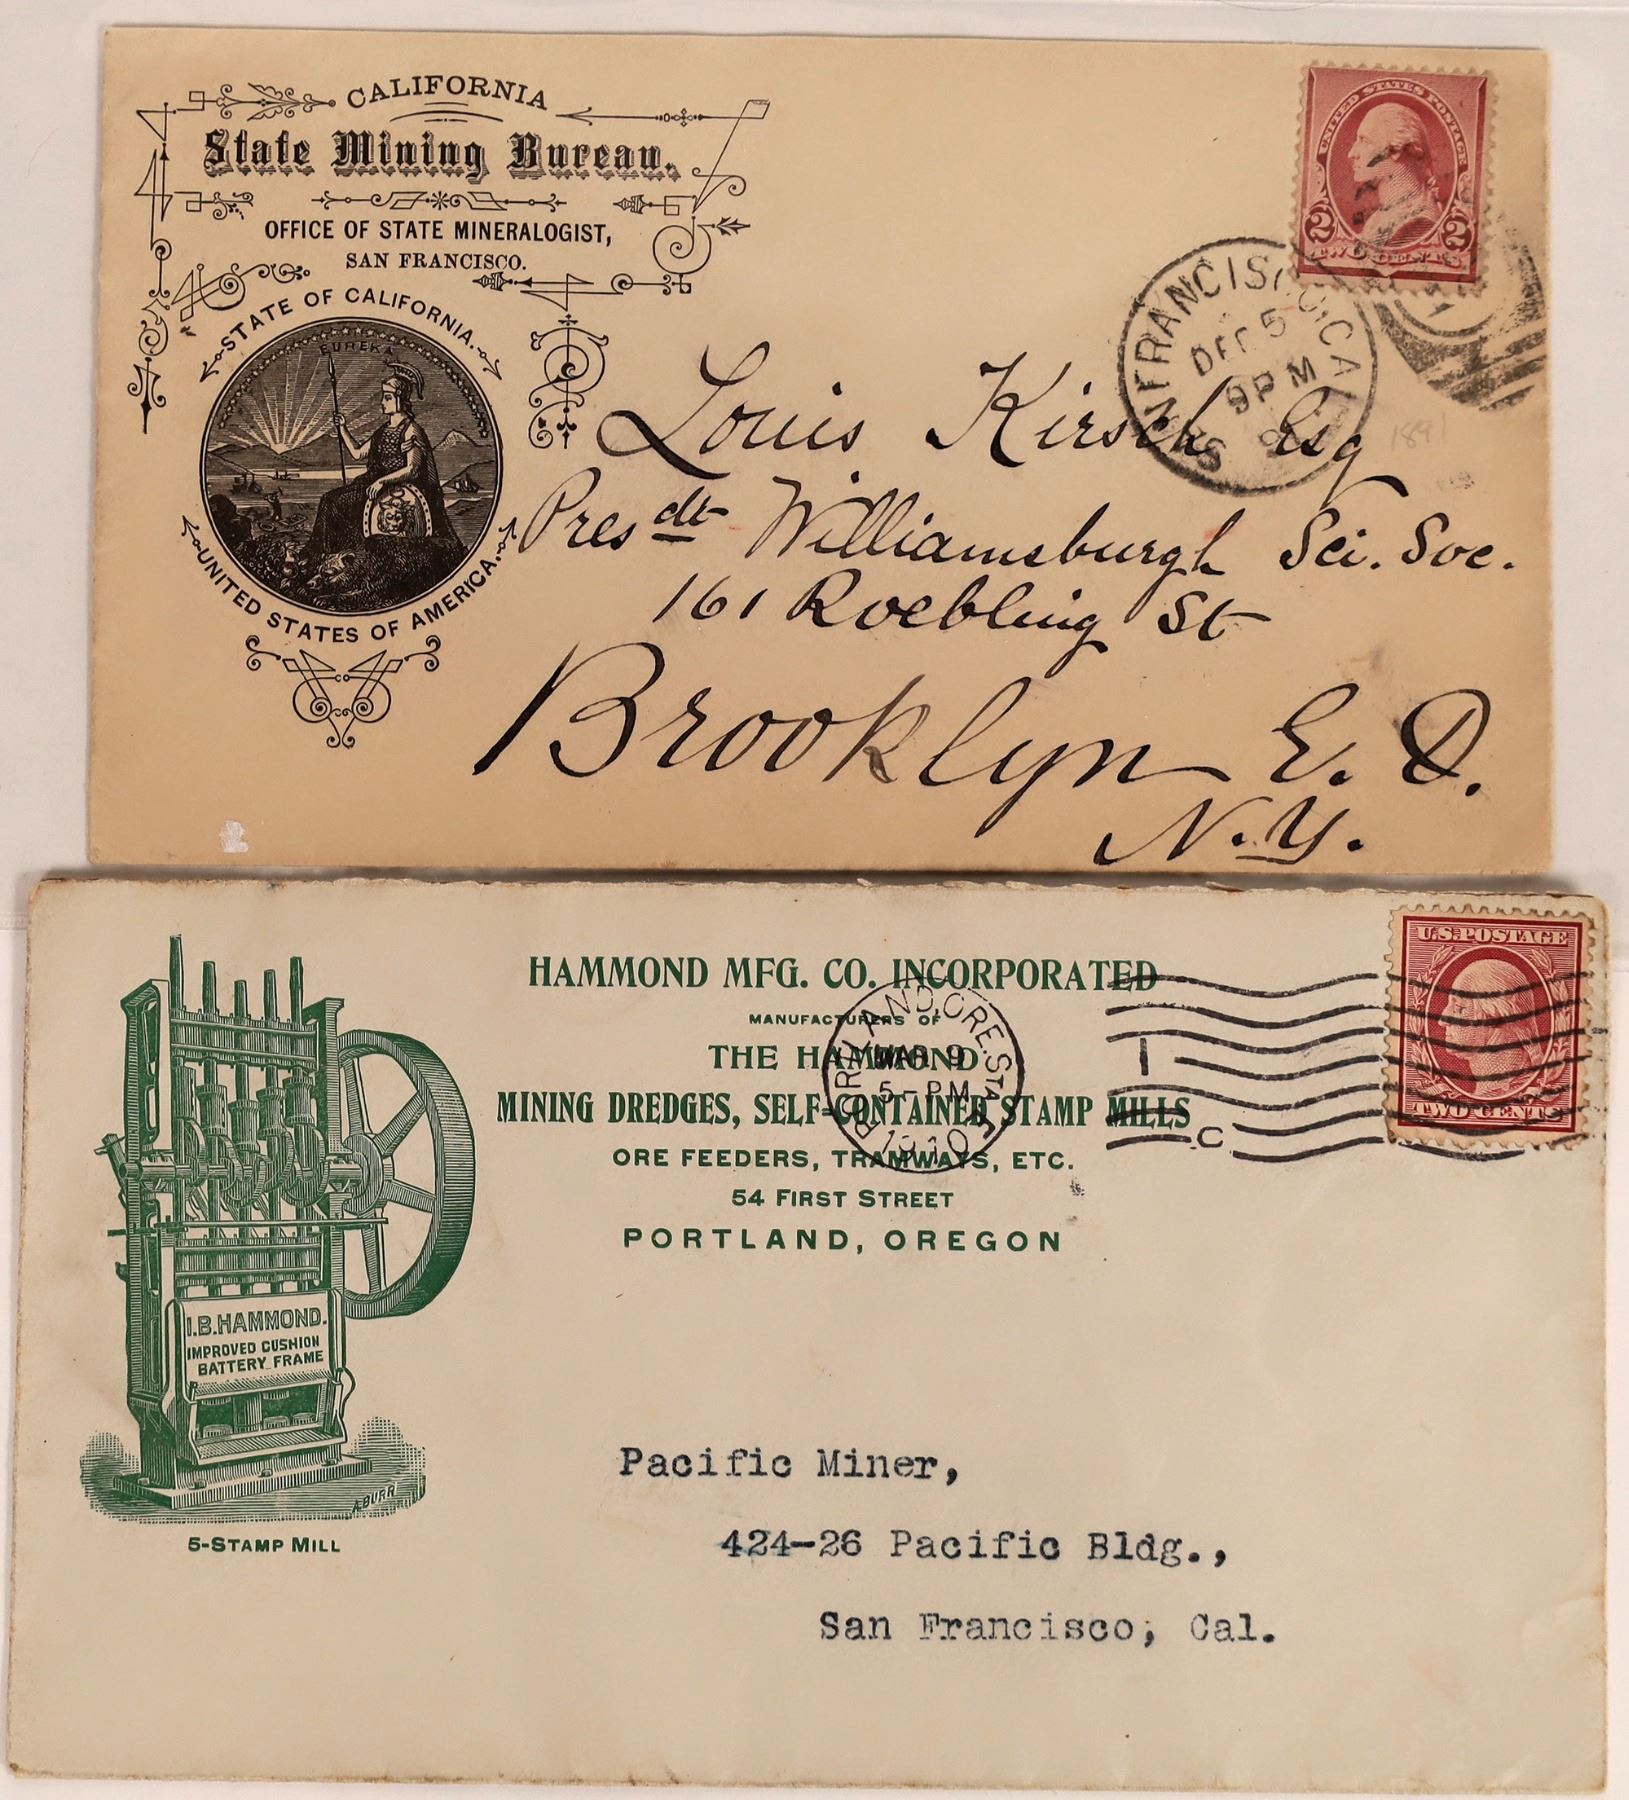 CALIFORNIA
State Mining Bureau.
OFFICE OF STATE MINERALOGIST,
SAN FRANCISCO.
STATE OF CALIFORNIA.
EUREKA
UNITED STATES OF AMERICA.
UNITED STATES POSTAGE
2 2
TWO CENTS
SAN FRANCISCO, CAL
DEC 5
9 PM
1891
Louis Kirsch Esq
Presdt Williamsburgh Sci. Soc.
161 Roebling St
Brooklyn E. D.
N.Y.
HAMMOND MFG. CO. INCORPORATED
MANUFACTURERS OF
THE HAMMOND
MINING DREDGES, SELF-CONTAINED STAMP MILLS
ORE FEEDERS, TRAMWAYS, ETC.
54 FIRST STREET
PORTLAND, OREGON
PORTLAND, ORE. STA.
MAR 9
5-PM
1910
1
C
U.S. POSTAGE
TWO CENTS
I.B. HAMMOND.
IMPROVED CUSHION
BATTERY FRAME
A.BURR
5-STAMP MILL
Pacific Miner,
424-26 Pacific Bldg.,
San Francisco, Cal.